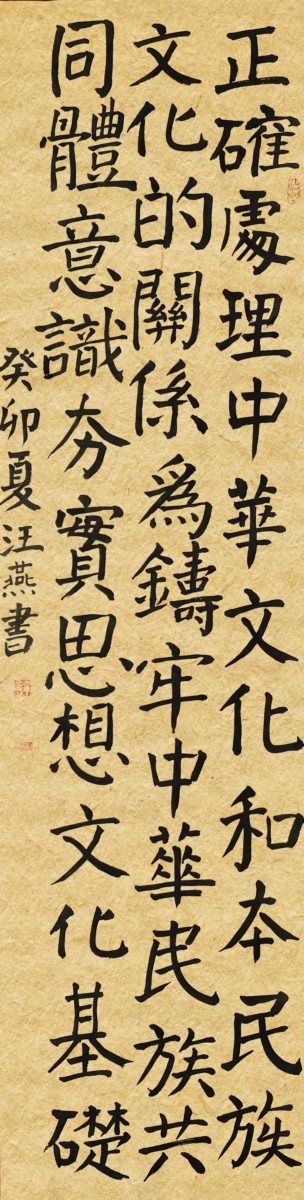 正確處理中華文化和本民族
文化的關係為鑄牢中華民族共
同體意識夯實思想文化基礎
癸卯夏汪燕書